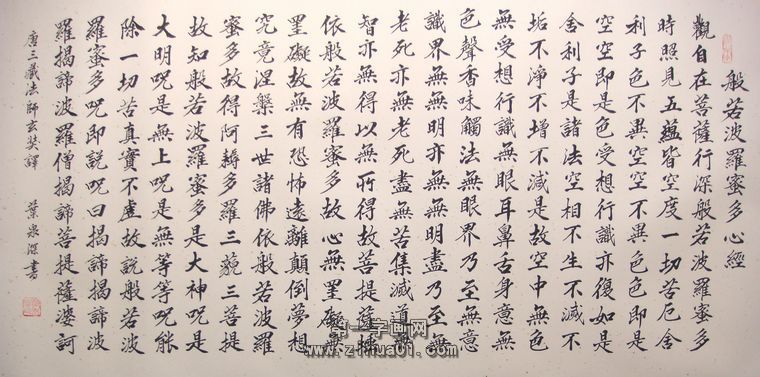 般若波羅蜜多心經
觀自在菩薩行深般若波羅蜜多
時照見五蘊皆空度一切苦厄舍
利子色不異空空不異色色即是
空空即是色受想行識亦復如是
舍利子是諸法空相不生不滅不
垢不淨不增不減是故空中無色
無受想行識無眼耳鼻舌身意無
色聲香味觸法無眼界乃至無意
識界無無明亦無無明盡乃至無
老死亦無老死盡無苦集滅道無
智亦無得以無所得故菩提薩埵
依般若波羅蜜多故心無罣礙無
罣礙故無有恐怖遠離顛倒夢想
究竟涅槃三世諸佛依般若波羅
蜜多故得阿耨多羅三藐三菩提
故知般若波羅蜜多是大神呪是
大明呪是無上呪是無等等呪能
除一切苦真實不虛故說般若波
羅蜜多呪即說呪曰揭諦揭諦波
羅揭諦波羅僧揭諦菩提薩婆訶
唐三藏法師玄奘譯 葉泉深書
第一字画网
www.zihua01.com